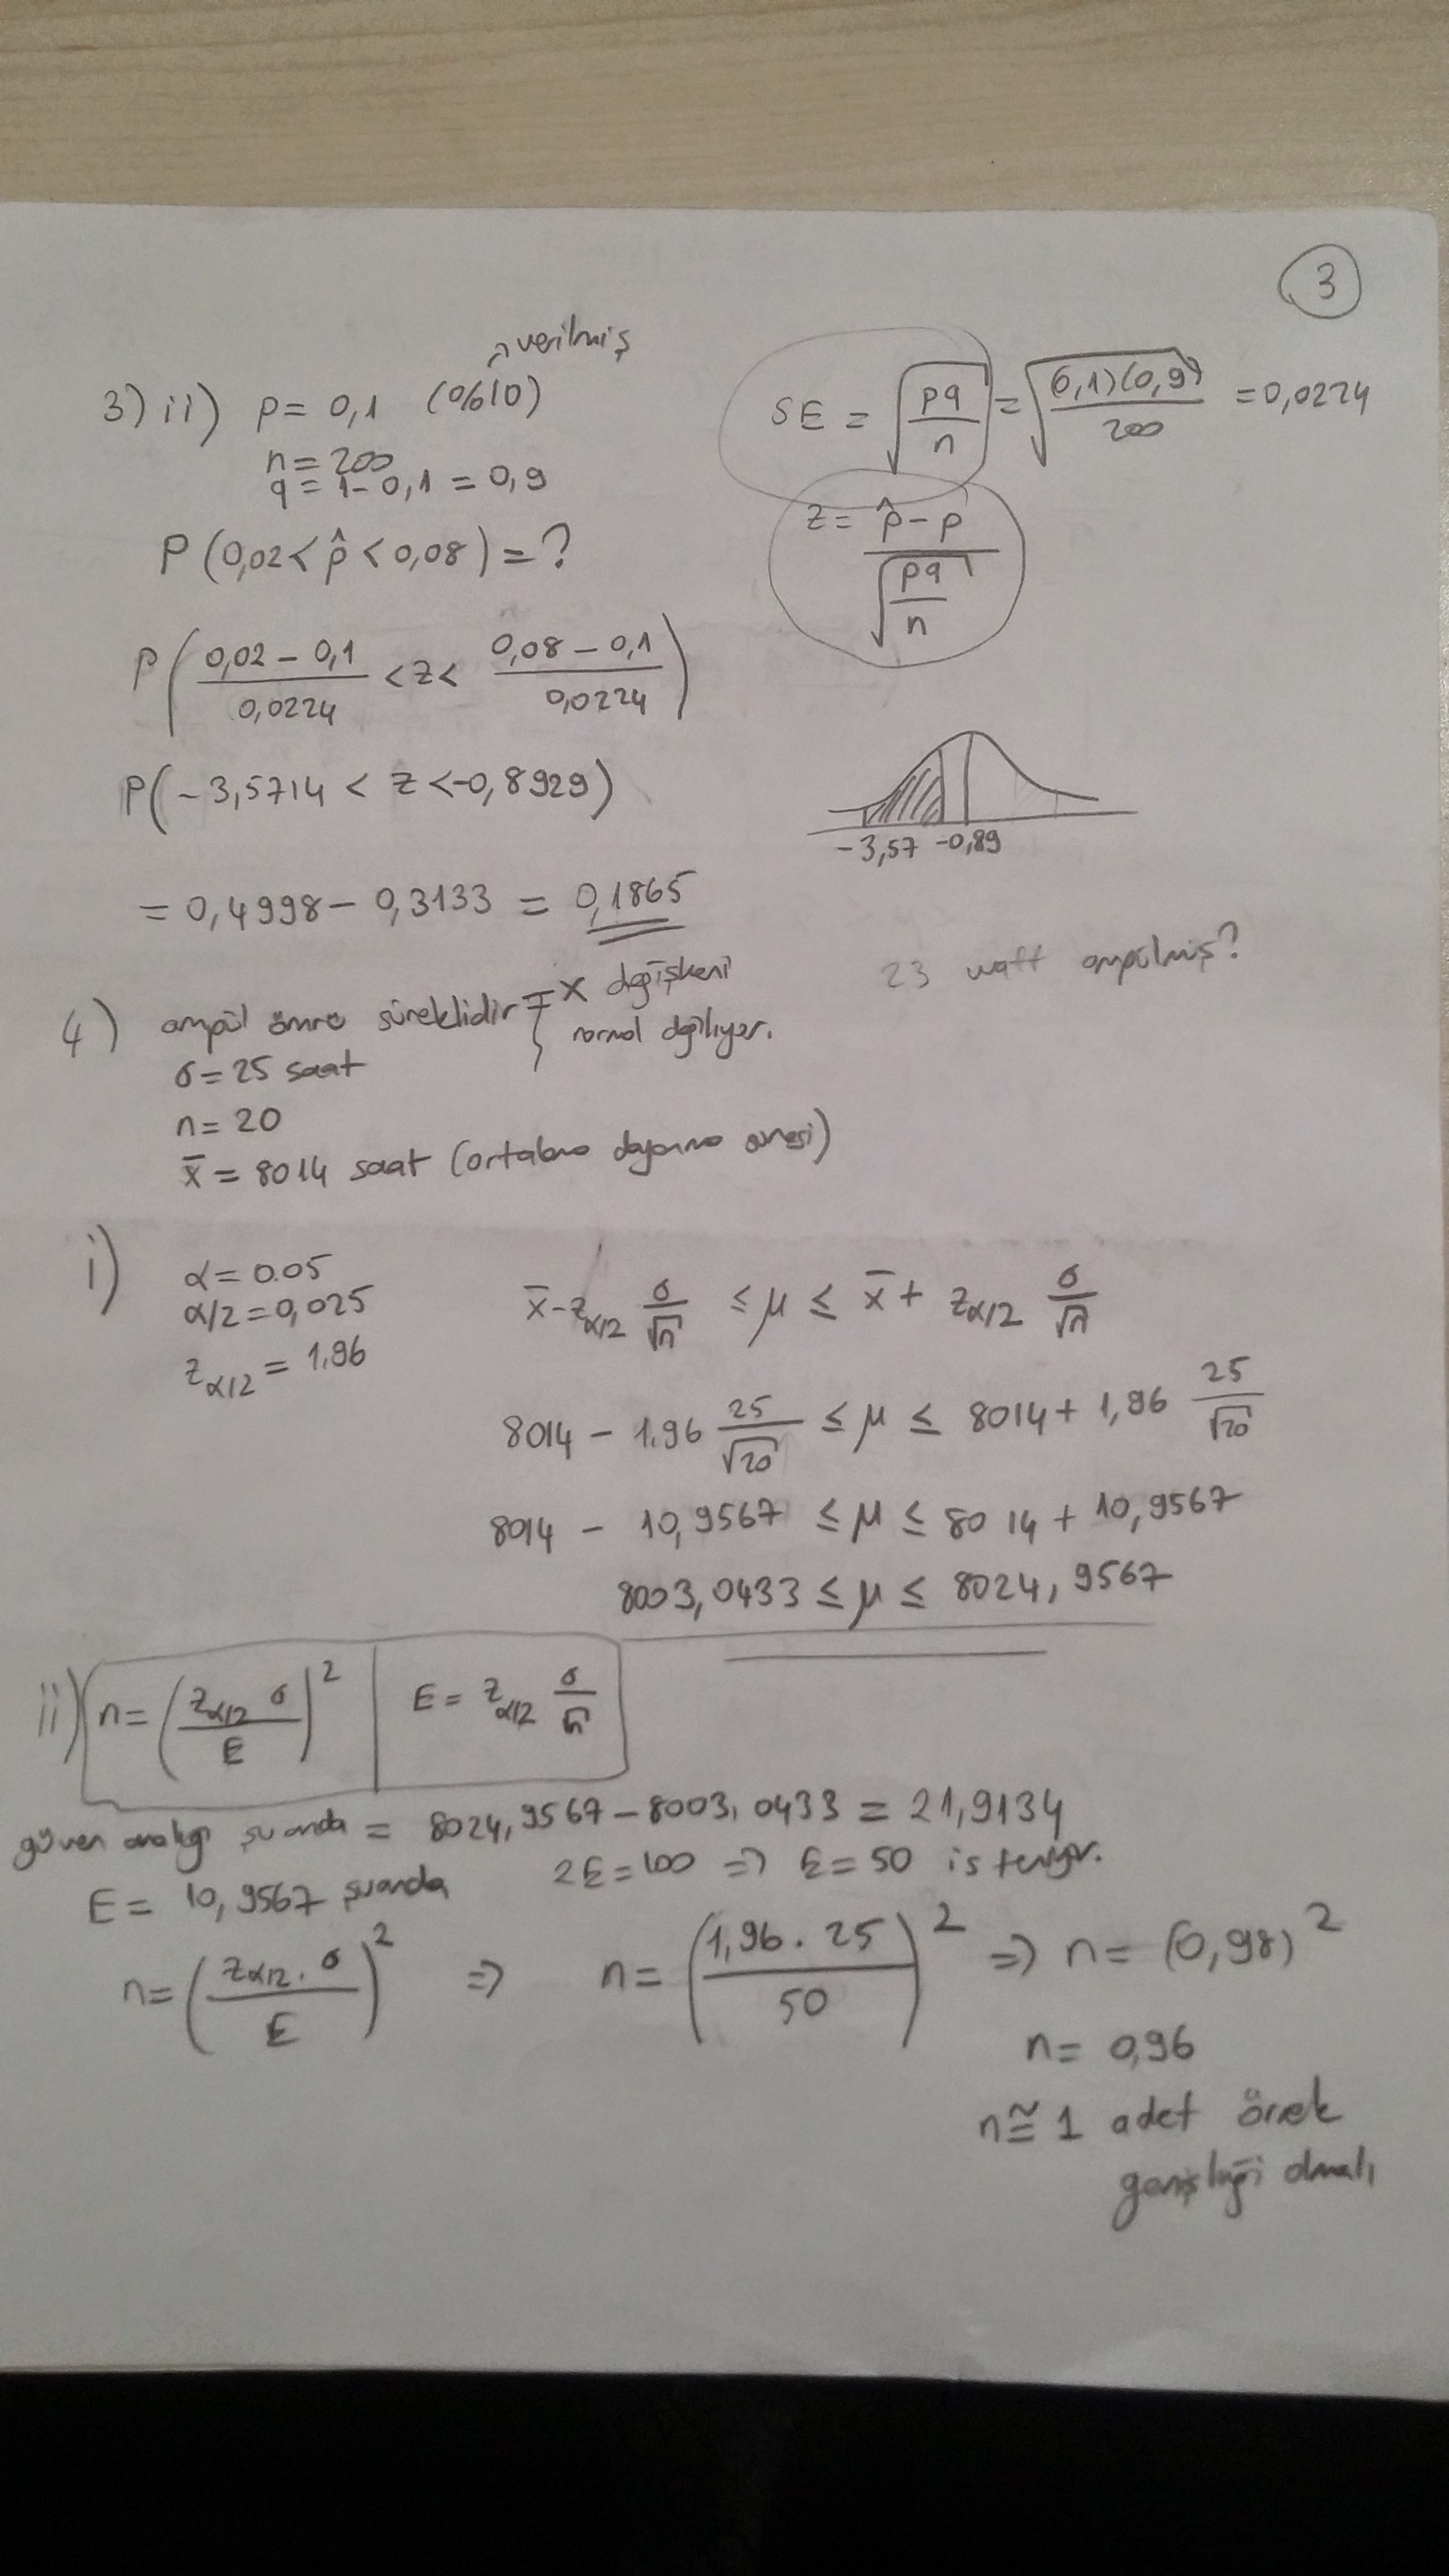 3
verilmiş
3) ii) p = 0,1 (%10)
n = 200
q = 1 - 0,1 = 0,9
SE = √(pq/n) = √((0,1)(0,9)/200) = 0,0224
z = (p̂ - p)/√(pq/n)
P(0,02 < p̂ < 0,08) = ?
P((0,02 - 0,1)/0,0224 < z < (0,08 - 0,1)/0,0224)
P(-3,5714 < z < -0,8929)
-3,57 -0,89
= 0,4998 - 0,3133 = 0,1865
23 watt ampülmüş?
4) ampül ömrü süreklidir x değişkeni
normal dağılıyor.
σ = 25 saat
n = 20
x̄ = 8014 saat (ortalama dayanma süresi)
i) α = 0.05
α/2 = 0,025
z α/2 = 1,96
x̄ - z α/2 σ/√n ≤ μ ≤ x̄ + z α/2 σ/√n
8014 - 1,96 25/√20 ≤ μ ≤ 8014 + 1,96 25/√20
8014 - 10,9567 ≤ μ ≤ 8014 + 10,9567
8003,0433 ≤ μ ≤ 8024,9567
ii) n = (z α/2 σ/E)² E = z α/2 σ/√n
güven aralığı şuanda = 8024,9567 - 8003,0433 = 21,9134
E = 10,9567 şuanda 2E = 100 => E = 50 isteniyor.
n = (z α/2 . σ/E)² => n = (1,96 . 25/50)² => n = (0,98)²
n = 0,96
n ≅ 1 adet örnek
genişliği olmalı